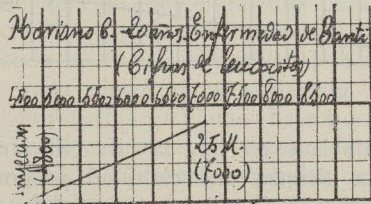 Mariano C. 20 años. Enfermedad de Banti
(Cifras de leucocitos)
4500 5000 5500 6000 6500 7000 7500 8000 8500
inyección
(4800)
25 M.
(7000)